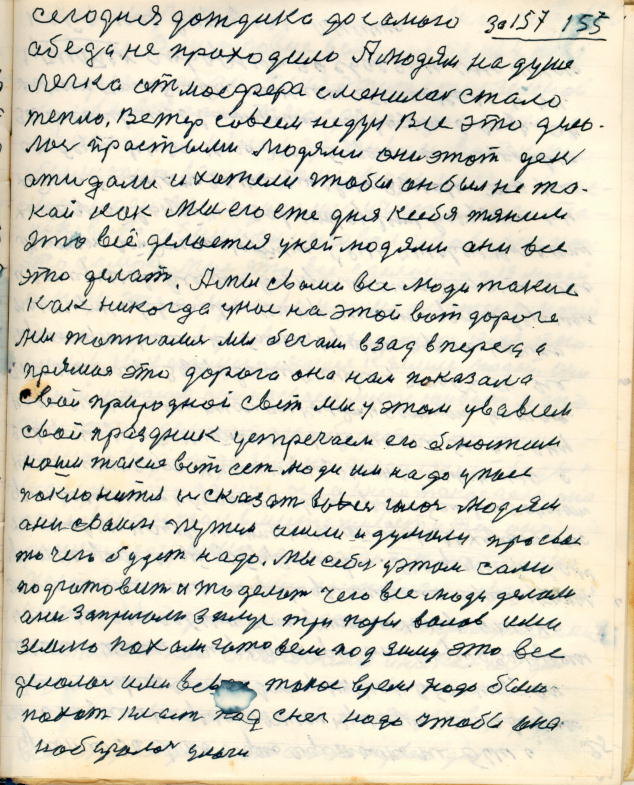 сегодня дождика до самого за 157 155
абеда не праходило А людям на душе
легка атмосфера сменилас стало
тепло. Ветер совсем не дул Все это дела-
лос прастыми людями они этот ден
ажидали и хотели чтобы он был не та-
кай как мы его сже дня к себя тяним
это всё делается укей людями ани все
это делат. А мы сваи все люди такие
как никогда унас на этой вот дороге
мы топталис мы бегали взад вперед а
прямая это дорога она нам показала
свой природной свет мы у этом увавсем
свой праздник устречаем его блюстим
наши такие вот ест люди им надо унас
поклонится и сказат вовсеи голос людям
ани сваим путем шли и думали просвае
то чего будет надо. Мы себя уэтом сами
подготовит и то делат чего все люди делали
ани запрягали в плуг три пары валов ими
землю пахали готовели под зиму это все
делалос ими все такое время надо было
пахат пласт под снег надо чтобы она
набиралос улаги